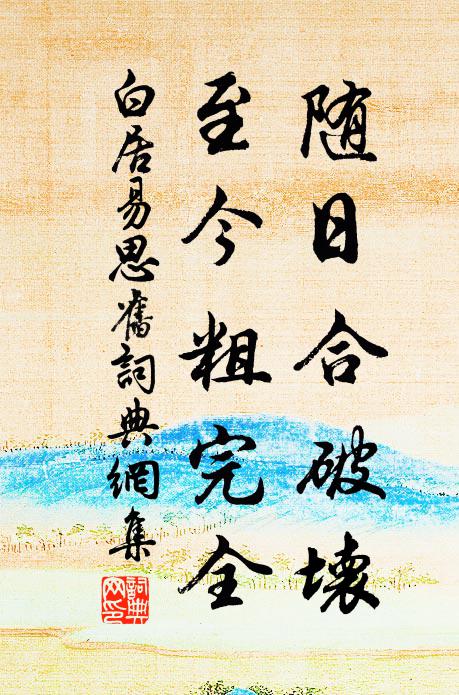 随日合破壞
至今粗完全
白居易思舊詞典網集
詞典
网印